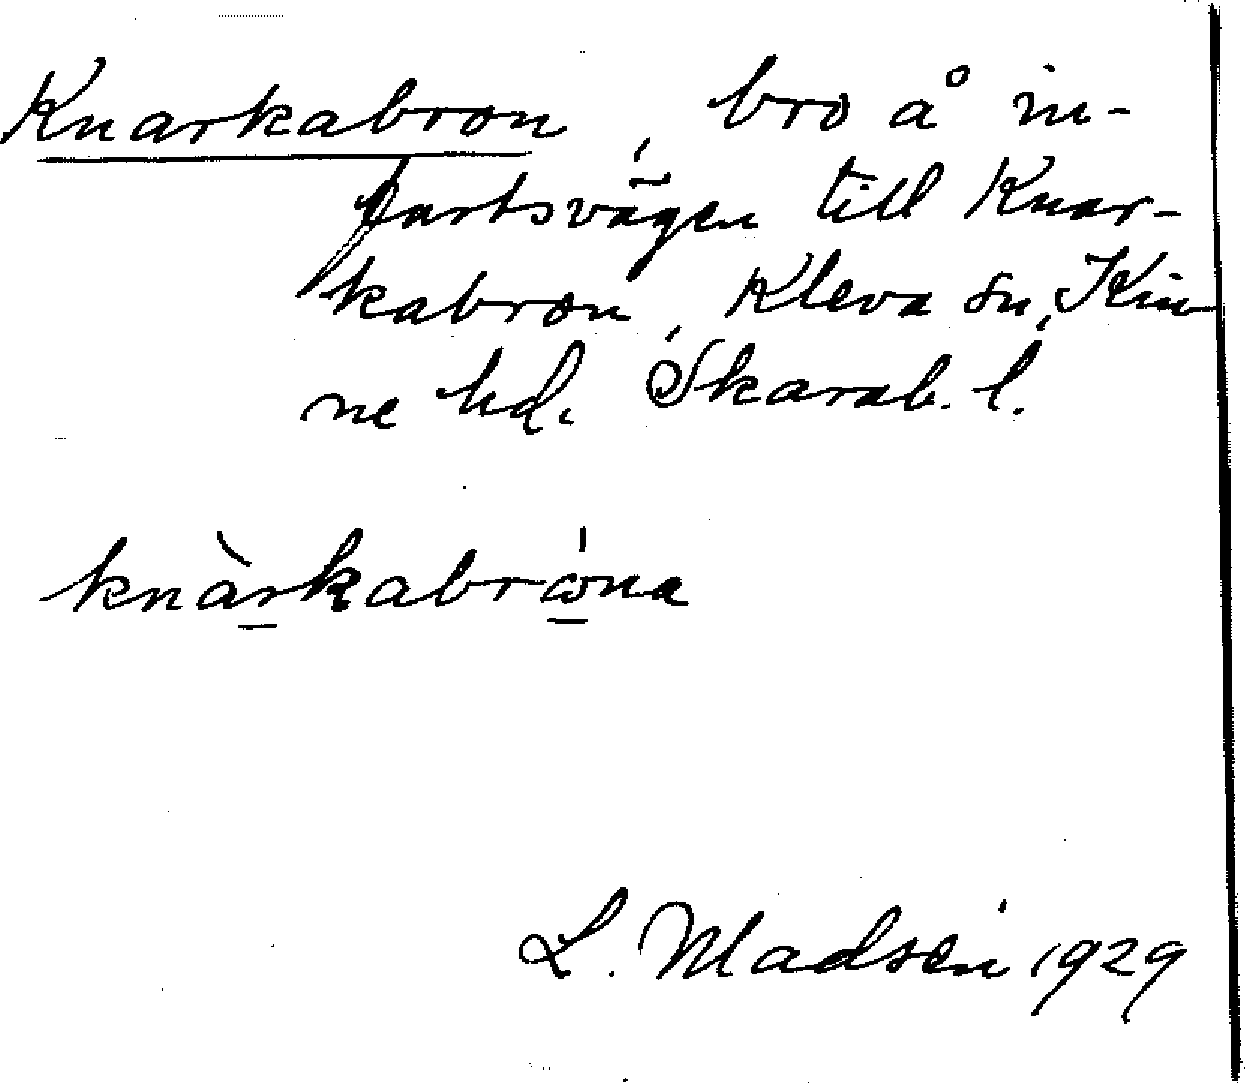 Knarkabron, bro å in-
fartsvägen till Knar-
kabron, Kleva sn, Kin
ne hd. Skarab. l.
knàrkabrona
L. Madsén 1929